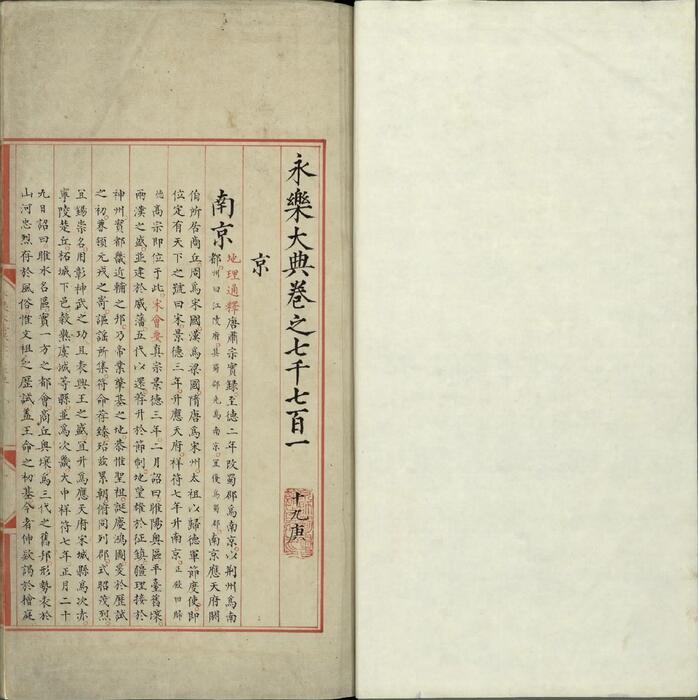 永樂大典卷之七千七百一
十九庚
京
南京
地理通釋唐肅宗實錄至德二年改蜀郡爲南京以荆州爲南
都州曰江陵府其蜀郡先爲南京宜復爲蜀郡南京應天府闕
伯所居商丘周爲宋國漢爲梁國隋唐爲宋州太祖以歸德軍節度使即
位定有天下之號曰宋景德三年升應天府祥符七年升南京正殿曰歸
德高宗即位于此宋會要真宗景德三年二月詔曰睢陽奥區平臺舊壤
兩漢之盛並建於戚藩五代以還荐升於節制地望雄於征鎮疆理接於
神州實都畿近輔之邦乃帝業肇基之地恭惟聖祖誕慶鴻圖爰於歷試
之初兼領元戎之寄謳謡所集符命荐臻殆兹累朝俯同列郡式昭茂烈
宜錫崇名用彰神武之功且表興王之盛宜升爲應天府宋城縣爲次赤
寧陵楚丘柘城下邑穀熟虞城等縣並爲次畿大中祥符七年正月二十
九日詔曰睢水名區實一方之都會商丘奥壤爲三代之舊邦形勢表於
山河忠烈存於風俗惟文祖之歷試蓋王命之初基今者伸欵謁於檜庭